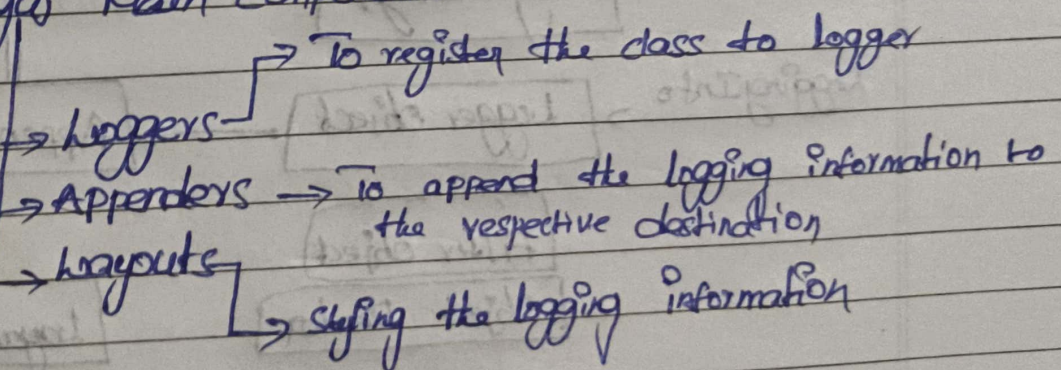 Main
→ To register the class to logger
→ Loggers
→ Appenders → To append the logging information to
the respective destination
→ Layouts
→ Styling the logging information